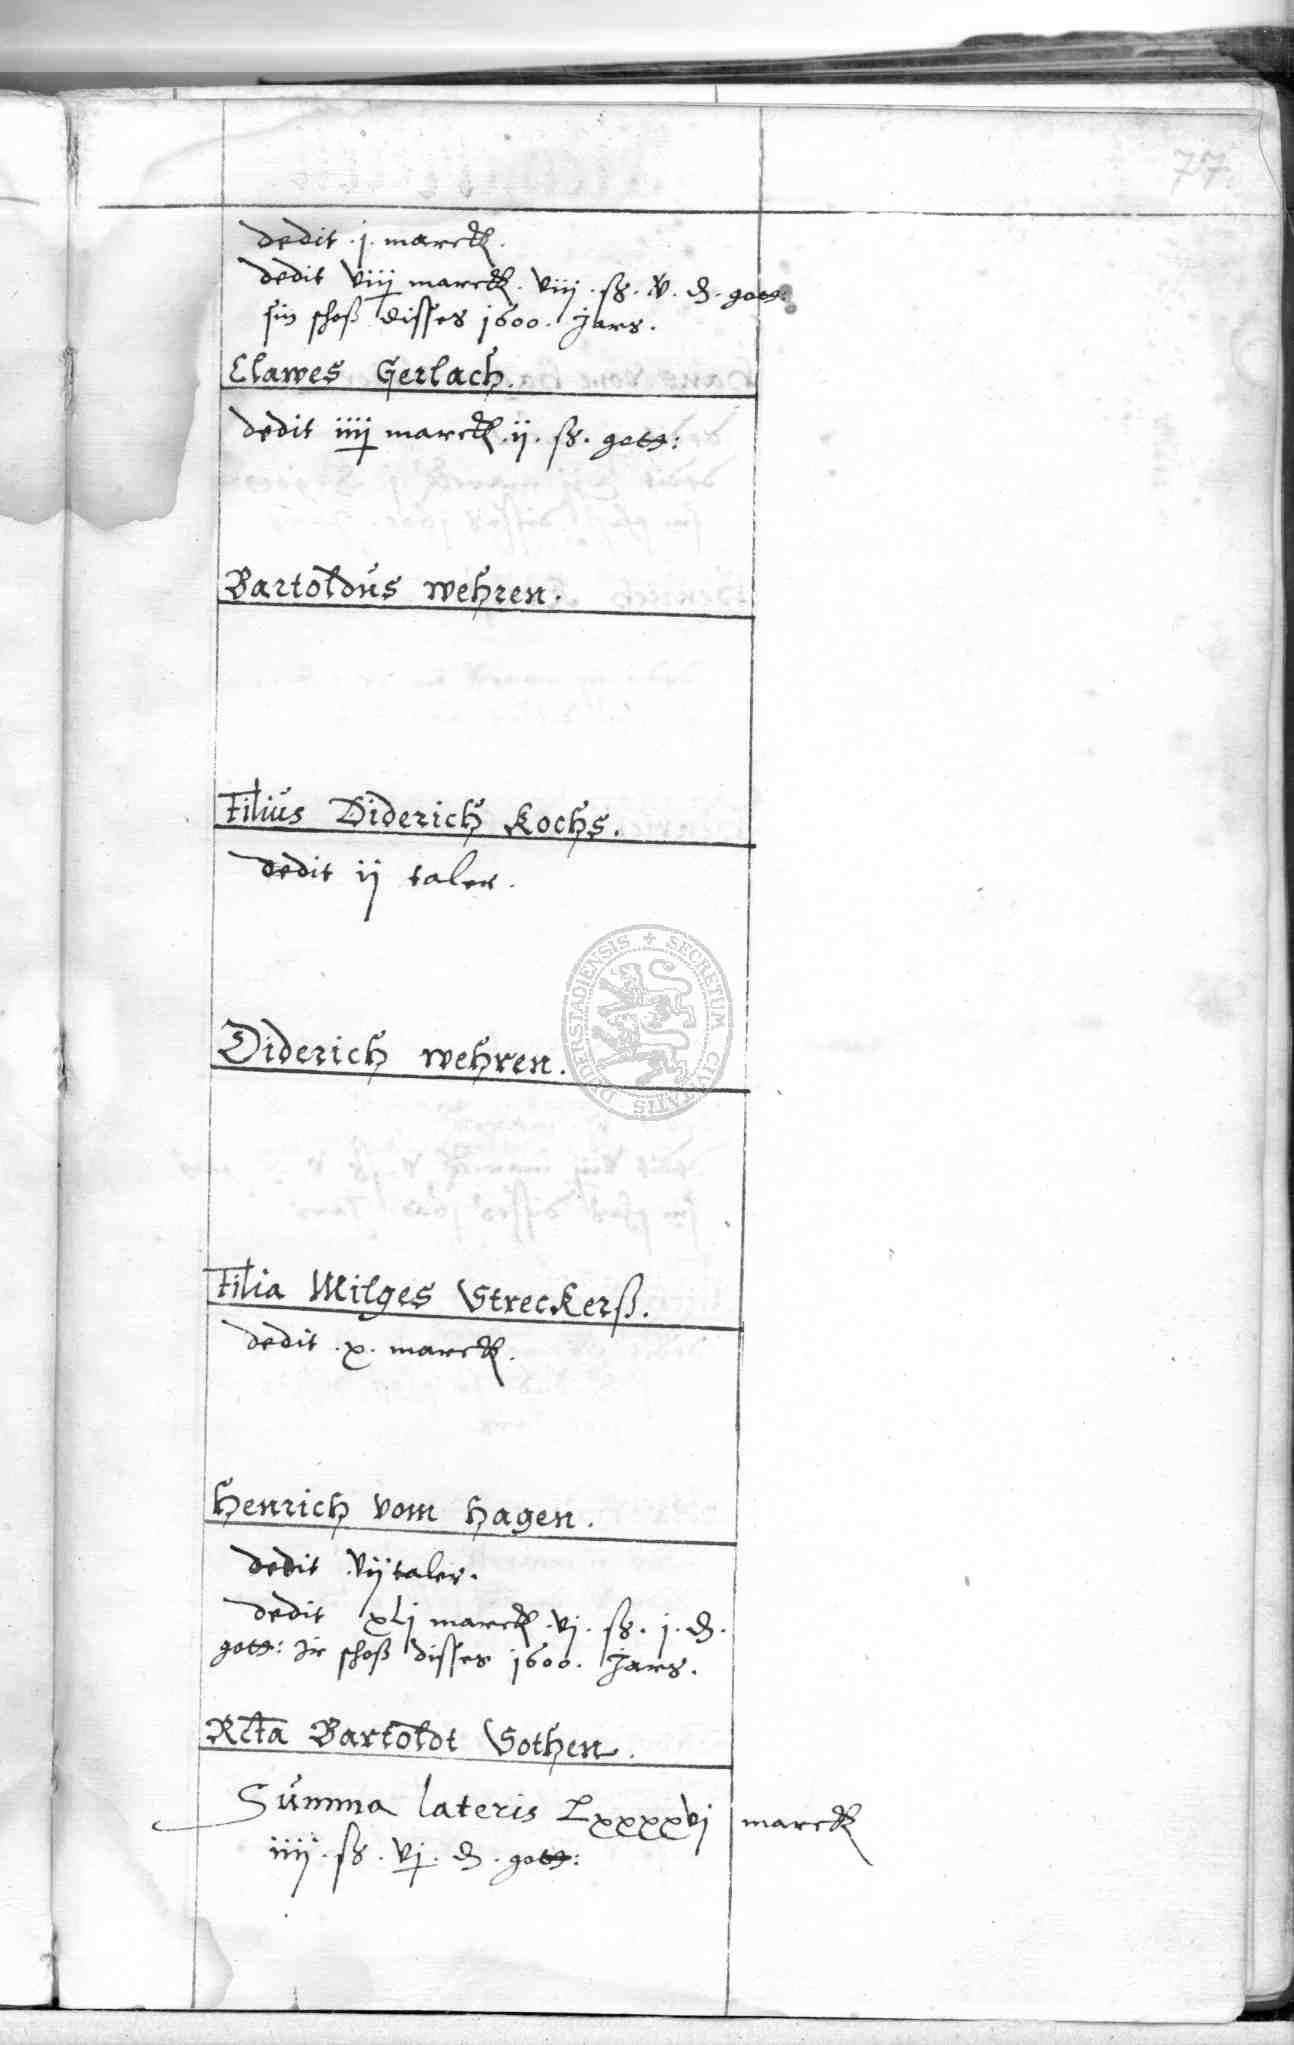 77.
dedit . j . marck .
dedit viij marck . viij . ß . v . d . gott:
sin schoß disses 1600 . Jars .
Clawes Gerlach .
dedit iiij marck . ij . ß . gott:
Bartoldus wehren .
Filius Diderich Kochs .
dedit ij taler .
Diderich wehren .
Filia Milges Streckerß .
dedit . x . marck .
Henrich vom Hagen .
dedit vij taler .
dedit xlj marck . vj . ß . j . d .
gott: Ir schoß disses 1600 . Jars .
Rcta Bartoldt Sothen .
Summa lateris Lxxxxvj marck
iiij . ß . vj . d . gott:
SECRETUM CIVITATIS DUDERSTADIENSIS